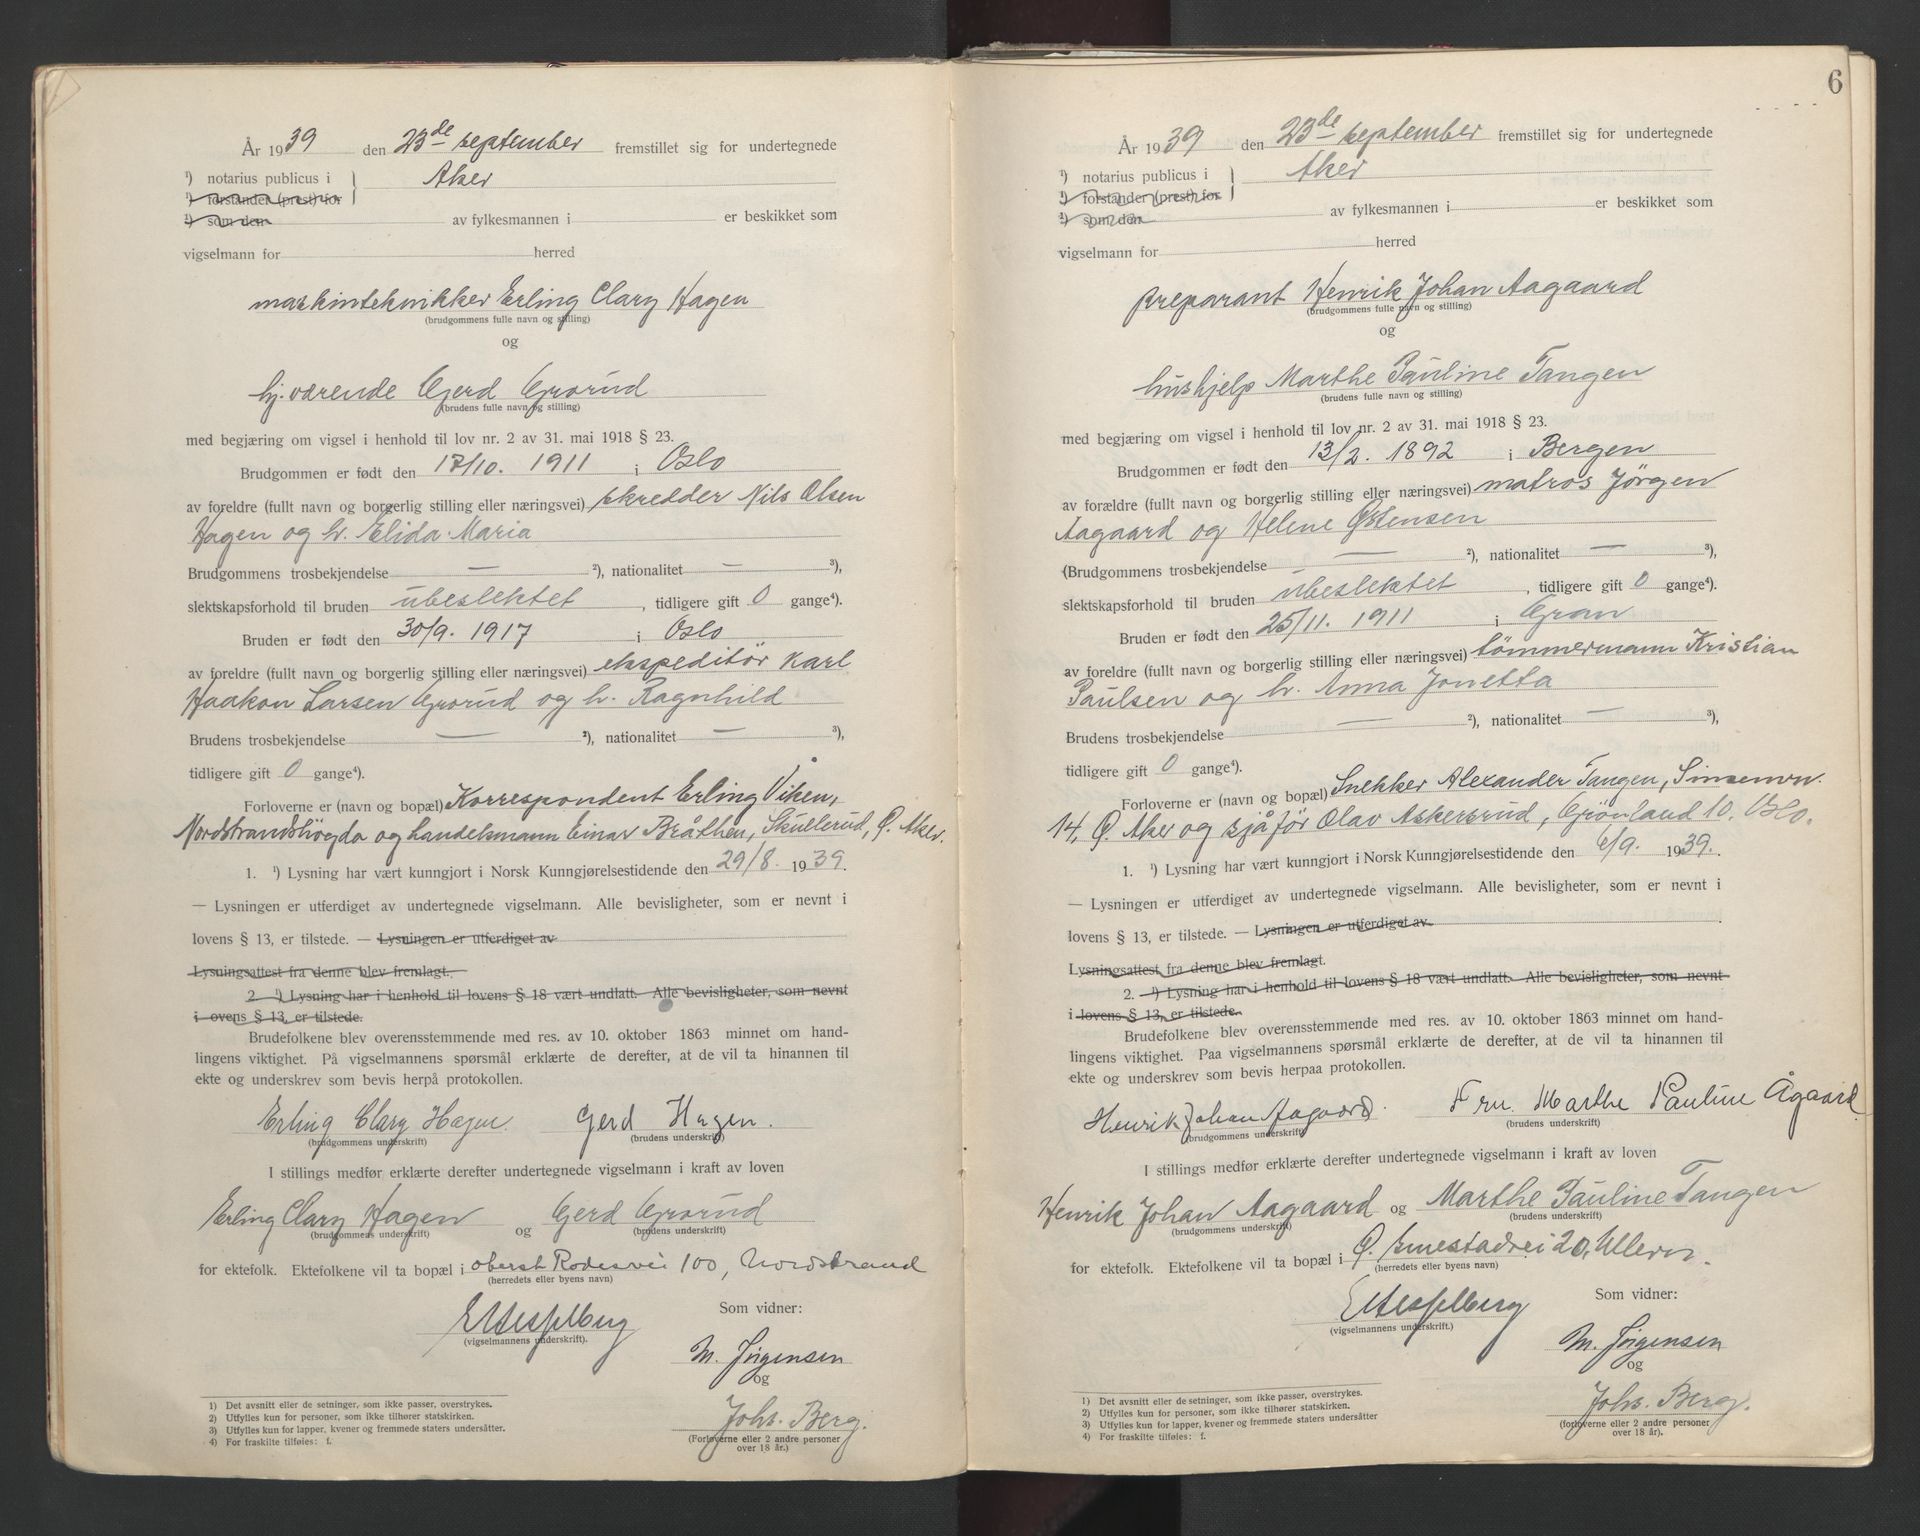 År 1939 den 23de september fremstillet sig for undertegnede
¹) notarius publicus i } Aker
¹) forstander (prest) for
¹) som den av fylkesmannen i er beskikket som
vigselmann for herred
maskinteknikker Erling Clary Hagen
(brudgommens fulle navn og stilling)
og
hj.værende Gerd Grorud
(brudens fulle navn og stilling)
med begjæring om vigsel i henhold til lov nr. 2 av 31. mai 1918 § 23.
Brudgommen er født den 17/10. 1911 i Oslo
av foreldre (fullt navn og borgerlig stilling eller næringsvei) skredder Nils Olsen
Hagen og h. Elida Maria
Brudgommens trosbekjendelse — ²), nationalitet — ³),
slektskapsforhold til bruden ubeslektet, tidligere gift 0 gange⁴).
Bruden er født den 30/9. 1917 i Oslo
av foreldre (fullt navn og borgerlig stilling eller næringsvei) ekspeditör Karl
Haakon Larsen Grorud og h. Ragnhild
Brudens trosbekjendelse — ²), nationalitet — ³),
tidligere gift 0 gange⁴).
Forloverne er (navn og bopæl) Korrespondent Erling Viken,
Nordstrandshögda og handelsmann Einar Bråthen, Skullerud, Ø. Aker.
1. ¹) Lysning har vært kunngjort i Norsk Kunngjørelsestidende den 29/8. 1939.
— Lysningen er utferdiget av undertegnede vigselmann. Alle bevisligheter, som er nevnt i
lovens § 13, er tilstede. — Lysningen er utferdiget av
Lysningsattest fra denne blev fremlagt.
2. ¹) Lysning har i henhold til lovens § 18 vært undlatt. Alle bevisligheter, som nevnt
i ovens § 13, er tilstede.
Brudefolkene blev overensstemmende med res. av 10. oktober 1863 minnet om hand-
lingens viktighet. På vigselmannens spørsmål erklærte de derefter, at de vil ta hinannen til
ekte og underskrev som bevis herpå protokollen.
Erling Clary Hagen. Gerd Hagen.
(brudgommens underskrift) (brudens underskrift)
I stillings medfør erklærte derefter undertegnede vigselmann i kraft av loven
Erling Clary Hagen og Gerd Grorud
(brudgommens underskrift) (brudens underskrift)
for ektefolk. Ektefolkene vil ta bopæl i oberst Rodesvei 100, Nordstrand
(herredets eller byens navn)
Som vidner:
(vigselmannens underskrift).
M. Jörgensen
og
Johs. Berg.
(Forloverne eller 2 andre personer
over 18 år).
1) Det avsnitt eller de setninger, som ikke passer, overstrykes.
2) Utfylles kun for personer, som ikke tilhører statskirken.
3) Utfylles kun for lapper, kvener og fremmede staters undersåtter.
4) For fraskilte tilføies: f.
6
År 1939 den 23de september fremstillet sig for undertegnede
¹) notarius publicus i } Aker
¹) forstander (prest) for
¹) som den av fylkesmannen i er beskikket som
vigselmann for herred
preparant Henrik Johan Aagaard
(brudgommens fulle navn og stilling)
og
hushjelp Marthe Pauline Tangen
(brudens fulle navn og stilling)
med begjæring om vigsel i henhold til lov nr. 2 av 31. mai 1918 § 23.
Brudgommen er født den 13/2. 1892 i Bergen
av forældre (fullt navn og borgerlig stilling eller næringsvei) matros Jørgen
Aagaard og Helene Østensen
(Brudgommens trosbekjendelse — ²), nationalitet — ³),
slektskapsforhold til bruden ubeslektet, tidligere gift 0 gange⁴).
Bruden er født den 25/11. 1911 i Gran
av foreldre (fullt navn og borgerlig stilling eller næringsvei) tömmermann Kristian
Paulsen og h. Anna Jonetta
Brudens trosbekjendelse — ²), nationalitet — ³),
tidligere gift 0 gange⁴).
Forloverne er (navn og bopæl) Snekker Alexander Tangen, Sinsenvn.
14, Ø. Aker og sjåför Olav Askersrud, Grönland 10, Oslo.
1. ¹) Lysning har vært kunngjort i Norsk Kunngjørelsestidende den 6/9. 1939.
— Lysningen er utferdiget av undertegnede vigselmann. Alle bevisligheter, som er nevnt i
lovens § 13, er tilstede. — Lysningen er utferdiget av
Lysningsattest fra denne blev fremlagt.
2. ¹) Lysning har i henhold til lovens § 18 vært undlatt. Alle bevisligheter, som nevnt
i lovens § 13, er tilstede.
Brudefolkene blev overensstemmende med res. av 10. oktober 1863 minnet om hand-
lingens viktighet. Paa vigselmannens spørsmål erklærte de derefter, at de vil ta hinannen til
ekte og underskrev som bevis herpaa protokollen.
Henrik Johan Aagaard. Fru. Marthe Pauline Ågaard
(brudgommens underskrift) (brudens underskrift)
I stillings medfør erklærte derefter undertegnede vigselmann i kraft av loven
Henrik Johan Aagaard og Marthe Pauline Tangen
(brudgommens underskrift) (brudens underskrift)
for ektefolk. Ektefolkene vil ta bopæl i Ø. 20, Ullern.
(herredets eller byens navn)
Som vidner:
(vigselmannens underskrift.)
M. Jörgensen
og
Johs. Berg.
(forloverne eller 2 andre personer
over 18 år).
1) Det avsnitt eller de setninger, som ikke passer, overstrykes.
2) Utfylles kun for personer, som ikke tilhører statskirken.
3) Utfylles kun for lapper, kvener og fremmede staters undersåtter
4) For fraskilte tilføies: f.